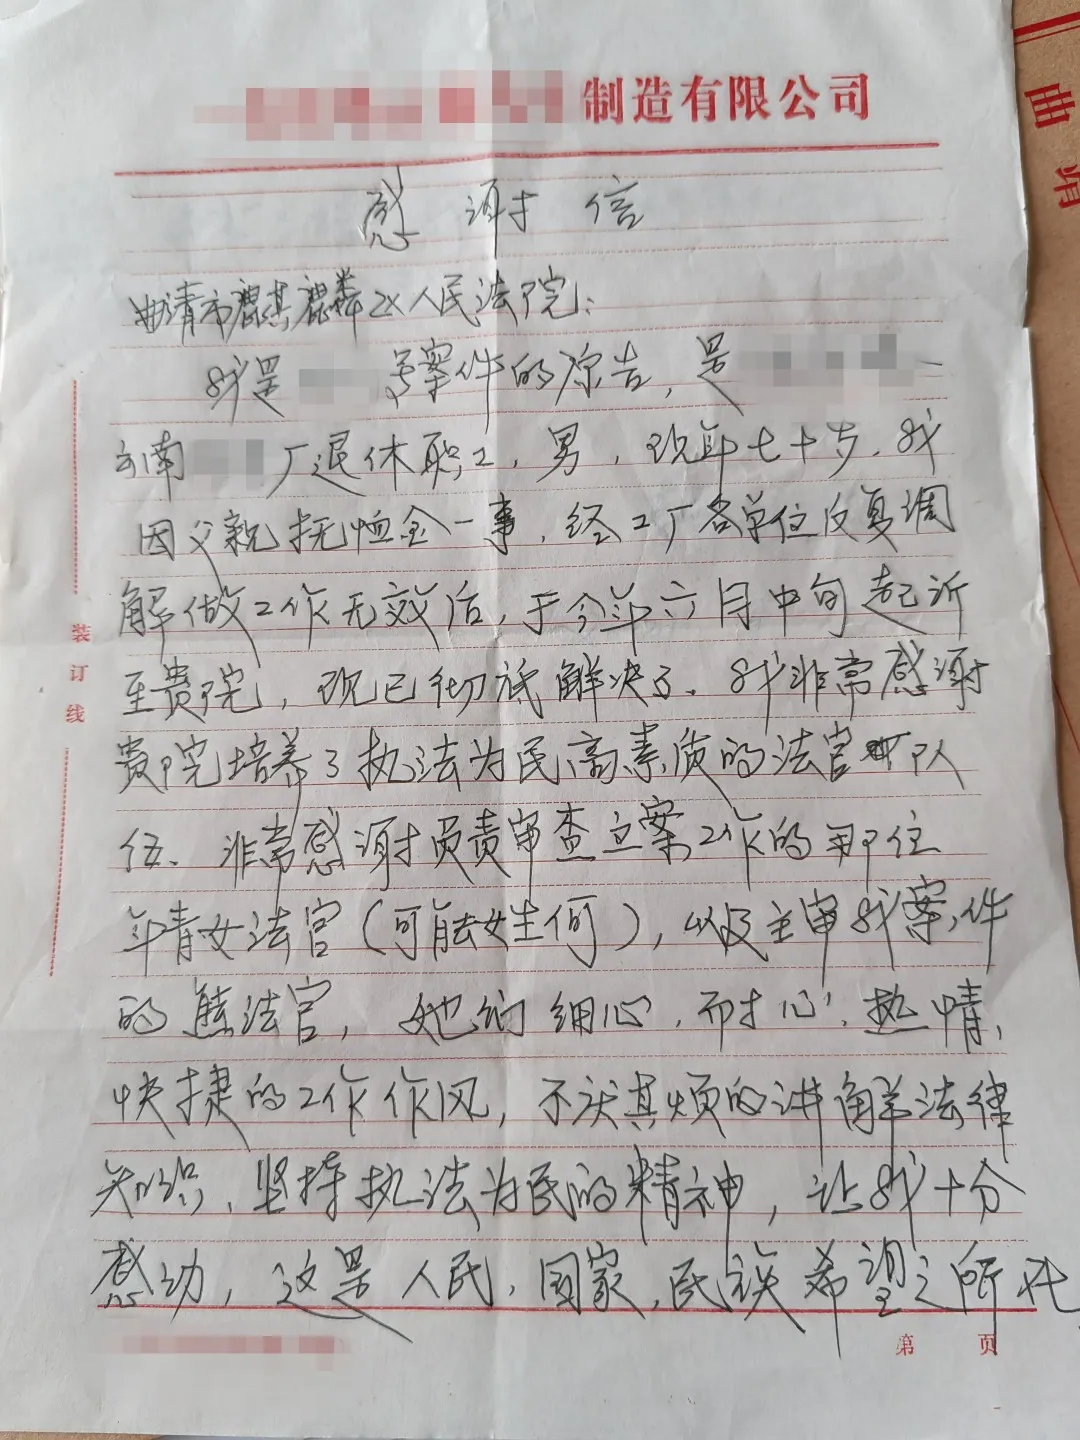 制造有限公司
感谢信
曲靖市麒麟区人民法院:
我是 号案件的原告，是
云南 厂退休职工，男，现年七十岁.我
因父亲抚恤金一事，经工厂各单位反复调
解做工作无效后，于今年六月中旬起诉
至贵院，现已彻底解决了.我非常感谢
贵院培养了执法为民高素质的法官队
伍、非常感谢负责审查立案工作的那位
年青女法官(可能姓何)，以及主审我案件
的熊法官，她们细心、耐心、热情、
快捷的工作作风，不厌其烦的讲解法律
知识、坚持执法为民的精神，让我十分
感动，这是人民、国家、民族希望之所托
装订线
第 页
曲靖